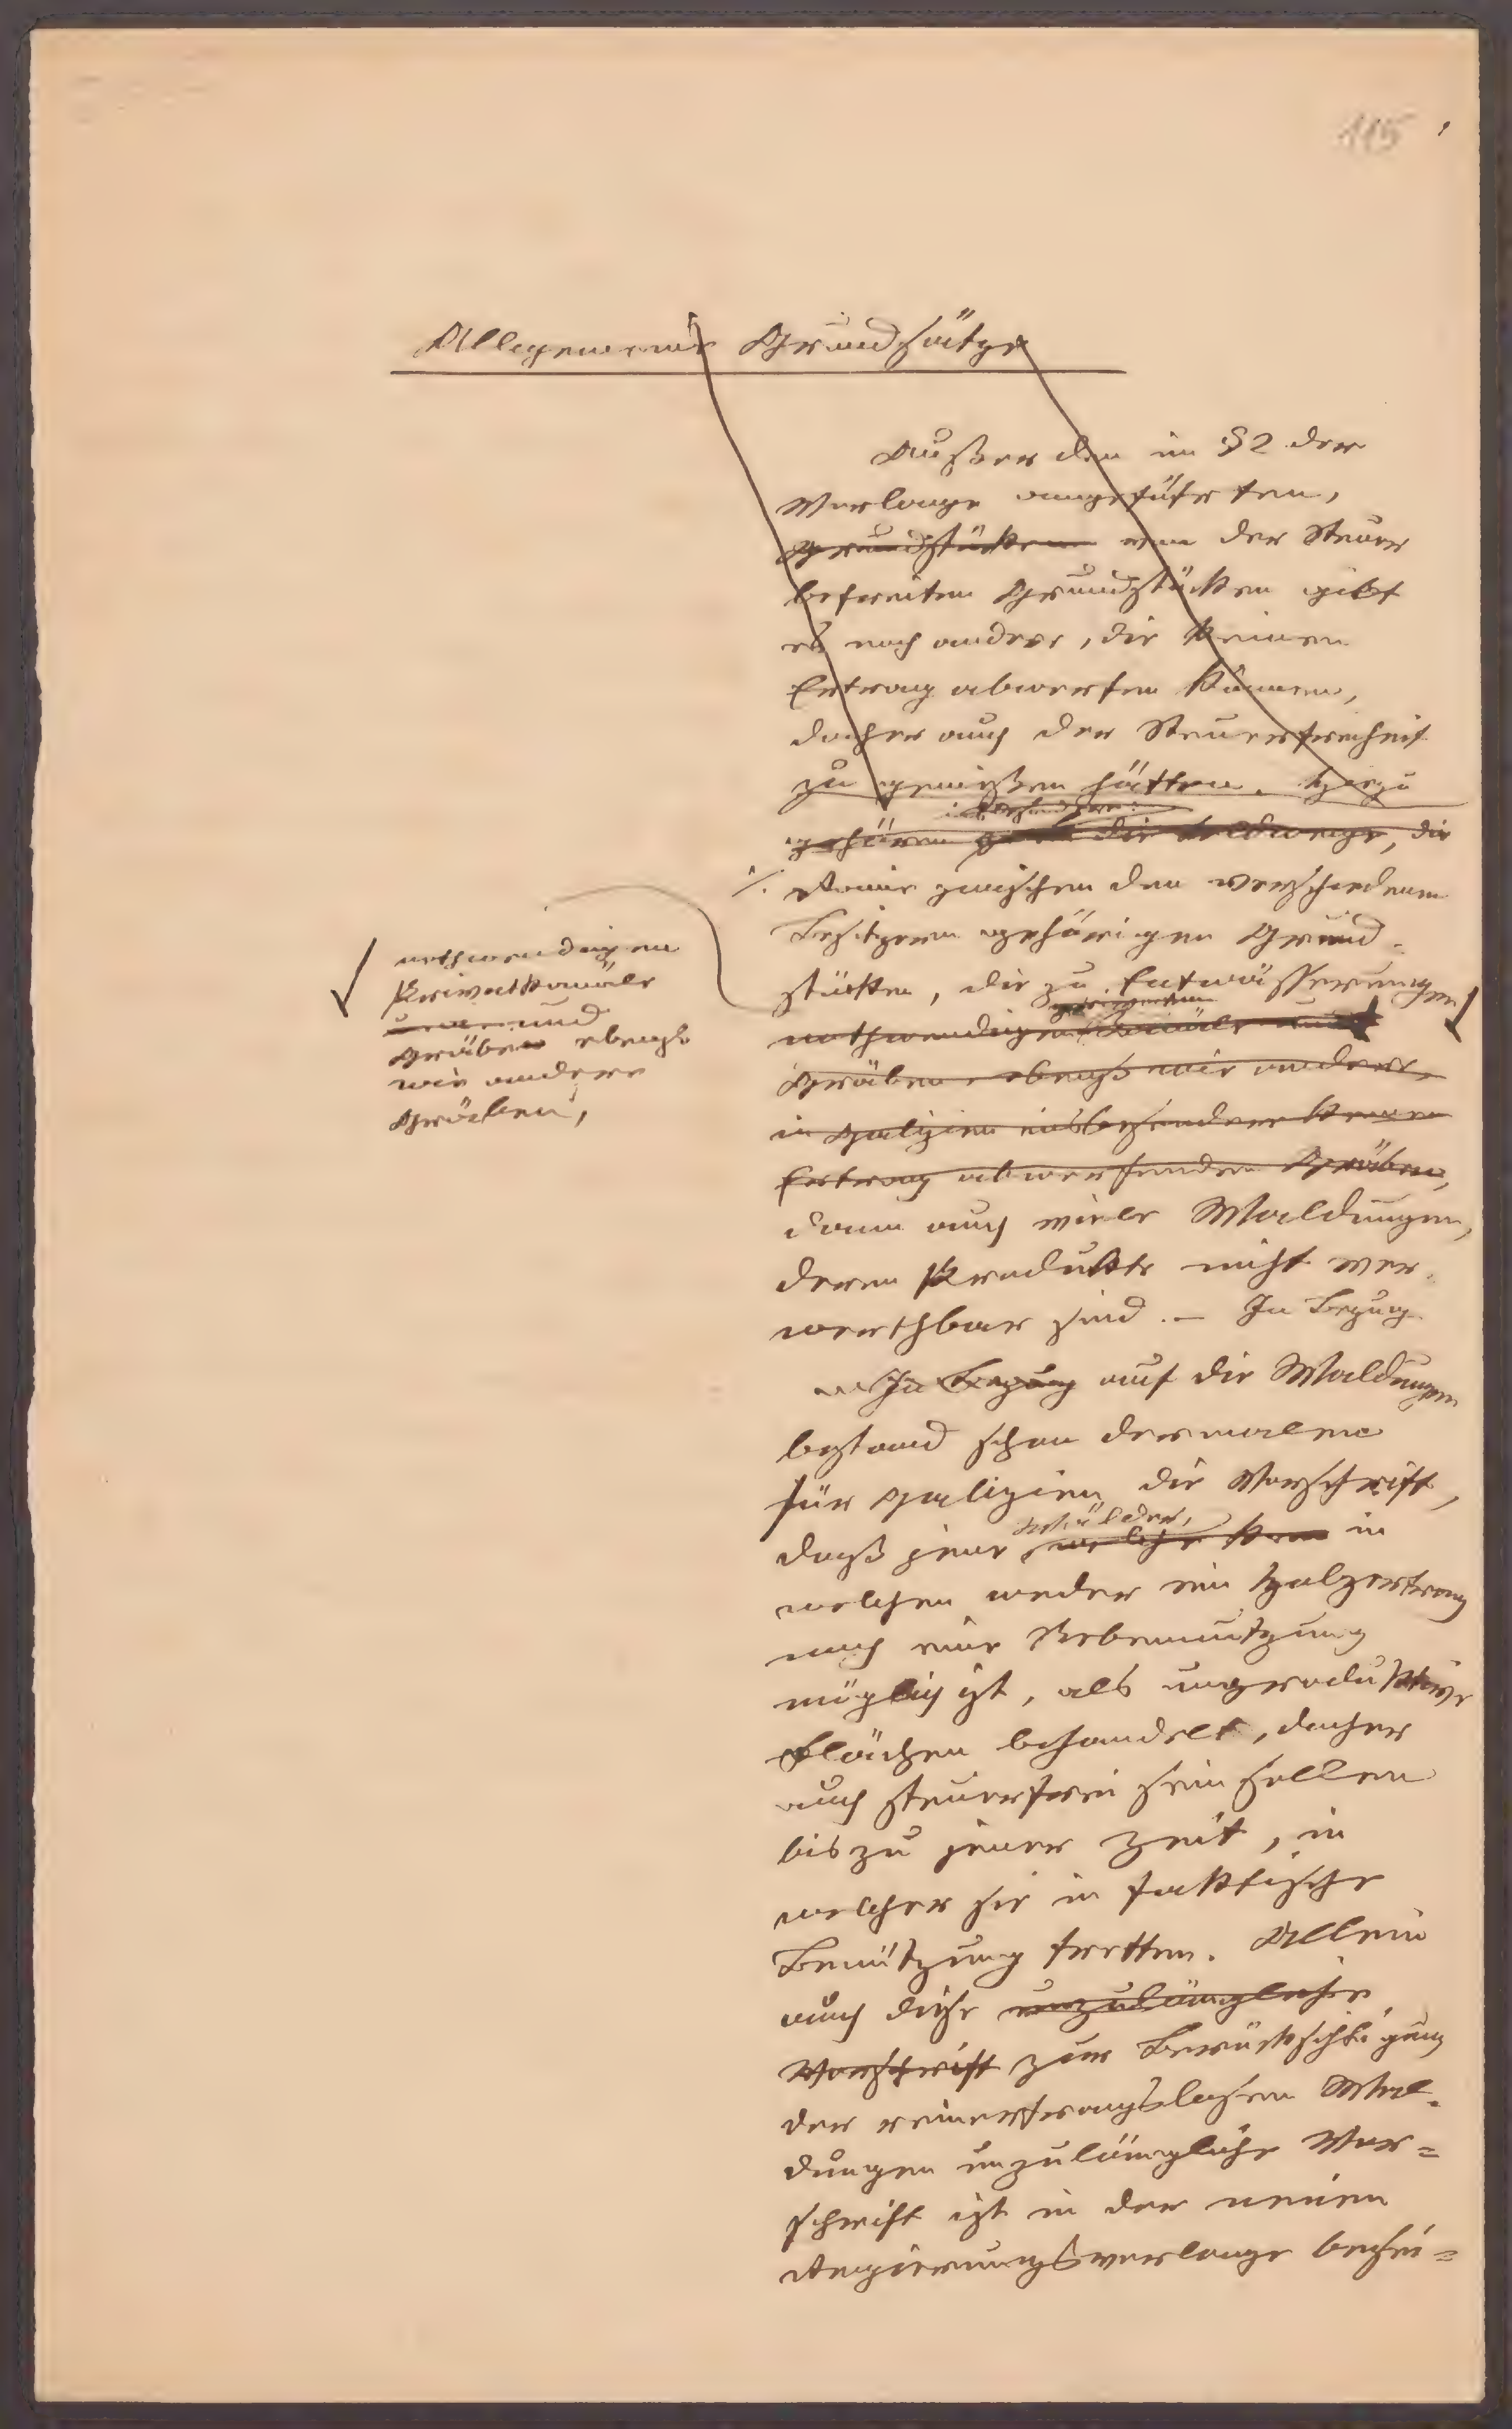 115
Allgemeine Grundsätze
Außer den im § 2 der
Vorlage angeführten,
Grundstücken von der Steuer
befreiten Grundstücken gibt
es noch andere, die keinen
Ertrag abwerfen können,
daher auch der Steuerfreiheit
zu genießen hätten. Hiezu
insbesondere:
gehören die Feldwege, die
Raine zwischen den verschiedenen
Besitzern gehörigen Grund-
stücken, die zu Entwässerungen
nothwendigen Kanäle und
Gräben, ebenso wie andere,
in Galizien insbesondere keinen
Ertrag abwerfenden Gräben,
nothwendigen
Privatkanäle
und
Gräben ebenso
wie andere
Gräben,
dann auch viele Waldungen,
deren Produkte nicht ver-
werthbar sind. – In Bezug
In Bezug auf die Waldungen
bestand schon dermalen
für Galizien die Vorschrift,
Wälder,
daß jene welche kein in
welchen weder ein Holzertrag
noch eine Nebennutzung
möglich ist, als unproduktive
Flächen behandelt, daher
auch steuerfrei sein sollen
bis zu jener Zeit, in
welcher sie in faktische
Benützung tretten. Allein
auch diese unzulängliche
Vorschrift zur Berücksichtigung
der reinertragslosen Wal-
dungen unzulängliche Vor=
schrift ist in der neuen
Regierungsvorlage besei=